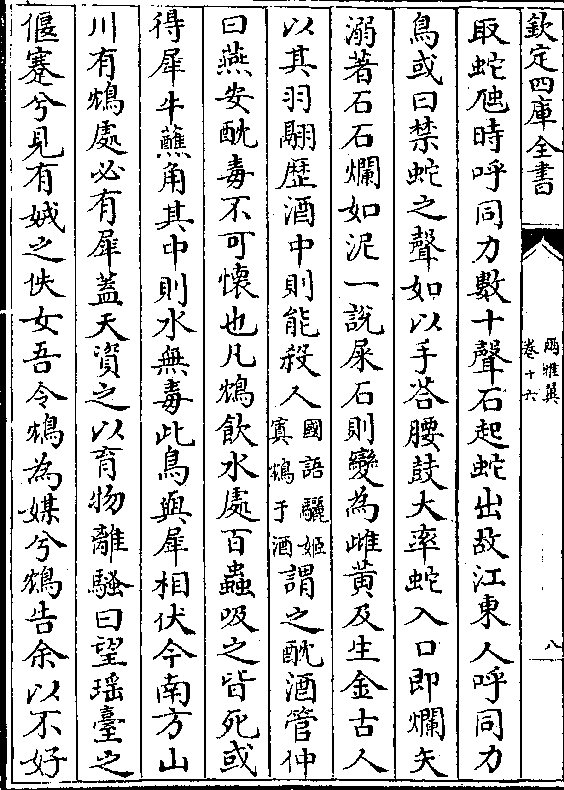 欽定四庫全書
爾雅翼
卷十六
八
取蛇虺時呼同力數十聲石起蛇出故江東人呼同力
鳥或曰禁蛇之聲如以手荅腰鼓大率蛇入口即爛矢
溺著石石爛如泥一說屎石則變為雌黃及生金古人
以其羽翮歷酒中則能殺人國語驪姬
寘鴆于酒謂之酖酒管仲
曰燕安酖毒不可懷也凡鴆飲水處百蟲吸之皆死或
得犀牛蘸角其中則水無毒此鳥與犀相伏今南方山
川有鴆處必有犀蓋天資之以育物離騷曰望瑶臺之
偃蹇兮見有娀之佚女吾令鴆為媒兮鴆告余以不好